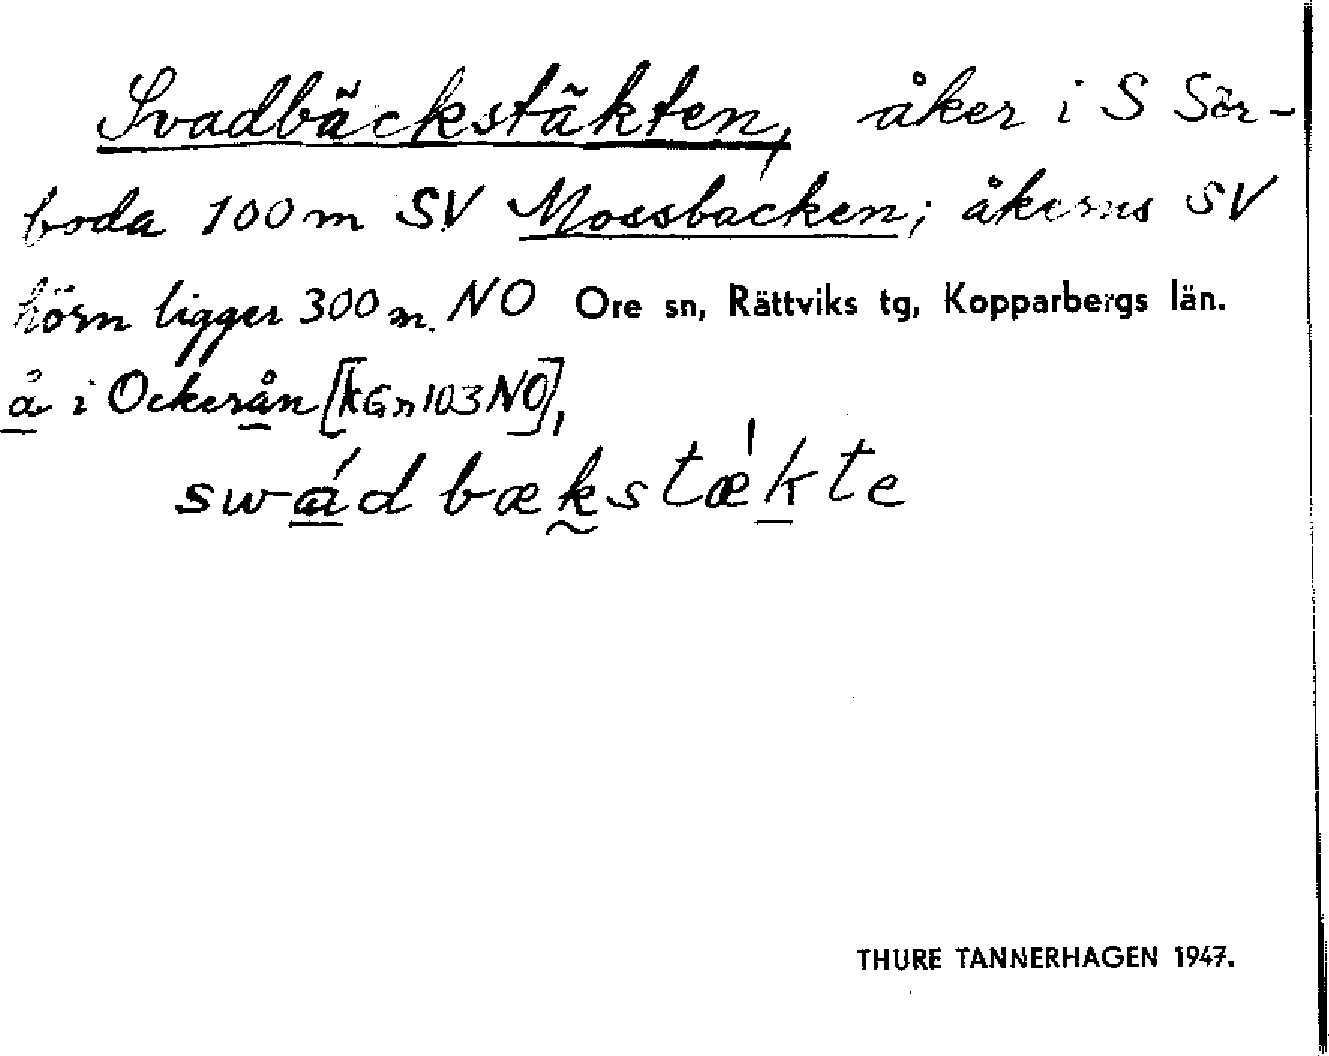 Svadbäckstäkten, åker i S Sör-
boda 100 m SV Mossbacken; åkerns SV
hörn ligger 300 m. NO Ore sn, Rättviks tg, Kopparbergs län.
å i Ockerån [kGn 103 NO],
swádbækstæ̍kte
THURE TANNERHAGEN 1947.